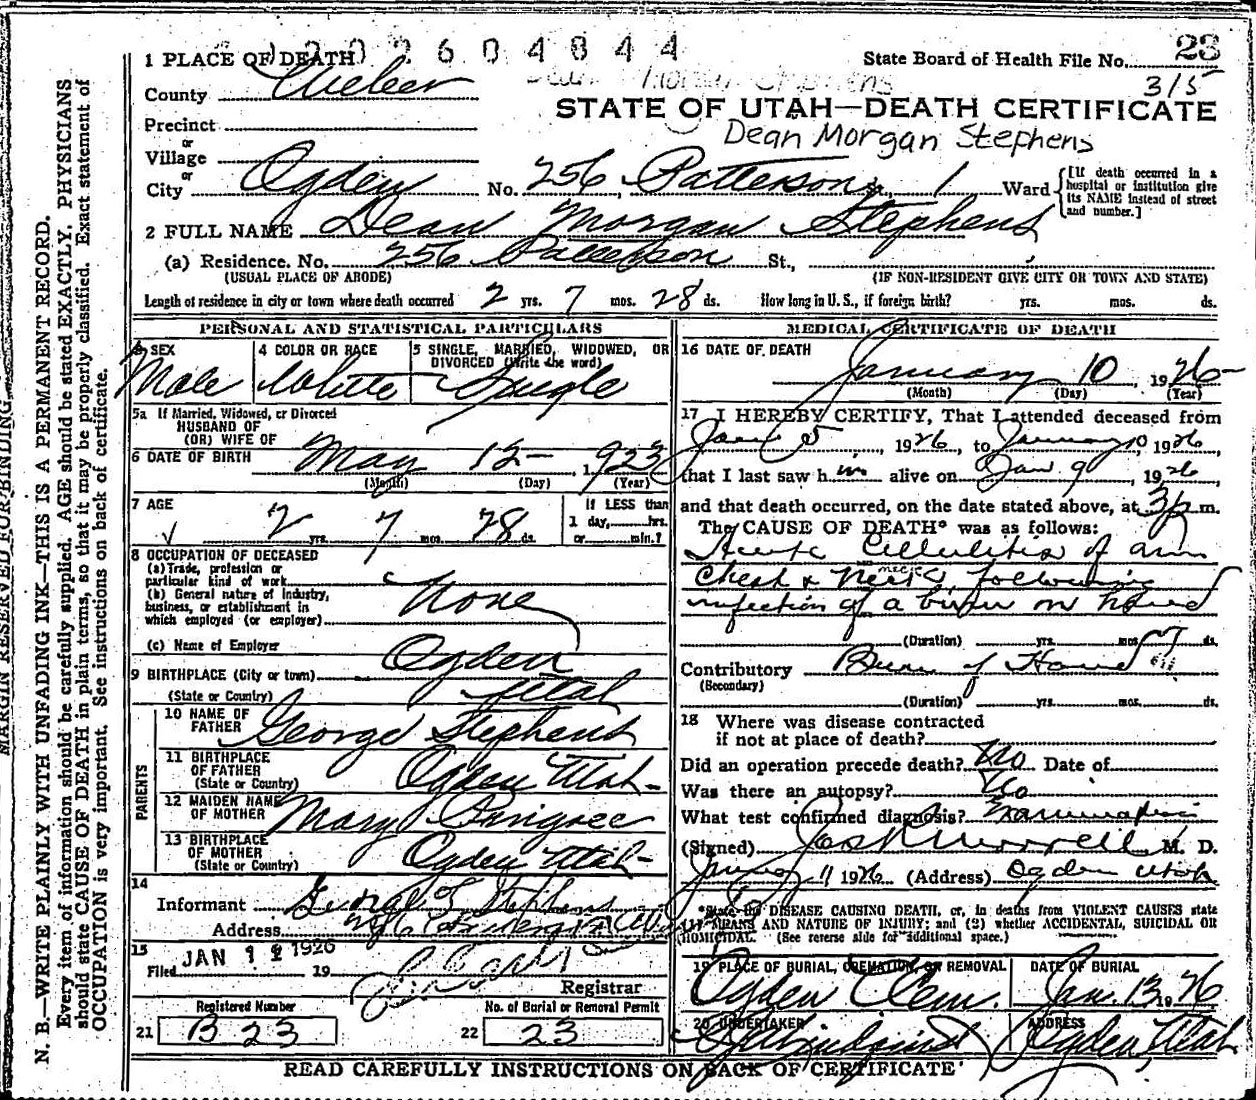 2 6 0 4 8 4 4
1 PLACE OF DEATH
State Board of Health File No. 23
315
County Weber
STATE OF UTAH—DEATH CERTIFICATE
Precinct
Dean Morgan Stephens
or
Village
or
City Ogden No. 256 Patterson St. 1 Ward
[If death occurred in a
hospital or institution give
its NAME instead of street
and number.]
2 FULL NAME Dean Morgan Stephens
(a) Residence. No. 256 Patterson St.,
(USUAL PLACE OF ABODE) (IF NON-RESIDENT GIVE CITY OR TOWN AND STATE)
Length of residence in city or town where death occurred 2 yrs. 7 mos. 28 ds. How long in U. S., if foreign birth? yrs. mos. ds.
PERSONAL AND STATISTICAL PARTICULARS
3 SEX
Male
4 COLOR OR RACE
White
5 SINGLE, MARRIED, WIDOWED, OR
DIVORCED (Write the word)
Single
5a If Married, Widowed, or Divorced
HUSBAND OF
(OR) WIFE OF
6 DATE OF BIRTH May 12, 1923
(Month) (Day) (Year)
7 AGE
2 yrs. 7 mos. 28 ds.
If LESS than
1 day, hrs.
or min.?
8 OCCUPATION OF DECEASED
(a) Trade, profession or
particular kind of work
(b) General nature of Industry,
business, or establishment in
which employed (or employer)
None
(c) Name of Employer
9 BIRTHPLACE (City or town) Ogden
(State or Country) Utah
PARENTS
10 NAME OF
FATHER George Stephens
11 BIRTHPLACE
OF FATHER
(State or Country) Ogden Utah
12 MAIDEN NAME
OF MOTHER Mary
13 BIRTHPLACE
OF MOTHER
(State or Country) Ogden Utah
14
Informant George Stephens
Address
15
Filed JAN 12 1926 19
Registrar
Registered Number
21 B 23
No. of Burial or Removal Permit
22 23
MEDICAL CERTIFICATE OF DEATH
16 DATE OF DEATH
January 10, 1926
(Month) (Day) (Year)
17 I HEREBY CERTIFY, That I attended deceased from
Jan 5, 1926, to January 10 1926,
that I last saw him alive on Jan 9, 1926,
and that death occurred, on the date stated above, at 3 p m.
The CAUSE OF DEATH* was as follows:
Acute Cellulitis of arm
Chest & Neck, following
neck
infection of a burn on hand
(Duration) yrs. mos. 7 ds.
Contributory Burn of Hand
(Secondary)
(Duration) yrs. mos. ds.
18 Where was disease contracted
if not at place of death?
Did an operation precede death? No Date of
Was there an autopsy? No
What test confirmed diagnosis? Examination
(Signed) Jos R Morrell M. D.
January 11 1926 (Address) Ogden Utah
*State the DISEASE CAUSING DEATH, or, in deaths from VIOLENT CAUSES state
(1) MEANS AND NATURE OF INJURY; and (2) whether ACCIDENTAL, SUICIDAL OR
HOMICIDAL. (See reverse side for additional space.)
19 PLACE OF BURIAL, CREMATION, OR REMOVAL
Ogden Cem.
DATE OF BURIAL
Jan. 13, 1926
20 UNDERTAKER
Lindquist
ADDRESS
Ogden, Utah
READ CAREFULLY INSTRUCTIONS ON BACK OF CERTIFICATE
MARGIN RESERVED FOR BINDING
N. B.—WRITE PLAINLY WITH UNFADING INK—THIS IS A PERMANENT RECORD.
Every item of information should be carefully supplied. AGE should be stated EXACTLY. PHYSICIANS
should state CAUSE OF DEATH in plain terms, so that it may be properly classified. Exact statement of
OCCUPATION is very important. See instructions on back of certificate.